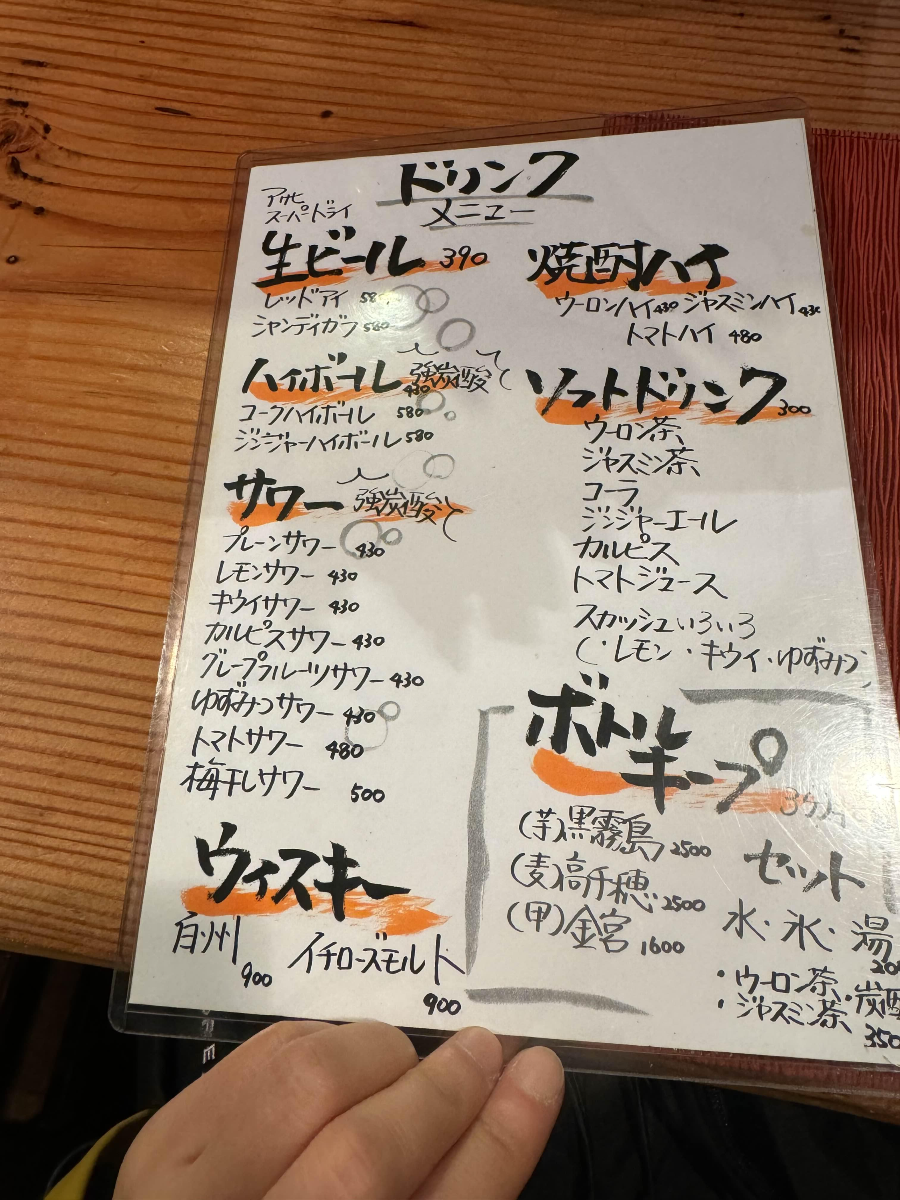 ドリンク
メニュー
アサヒ
スーパードライ
生ビール 390
レッドアイ 580
シャンディガフ 580
ハイボール 強炭酸で
430
コークハイボール 580
ジンジャーハイボール 580
サワー 強炭酸で
プレーンサワー 430
レモンサワー 430
キウイサワー 430
カルピスサワー 430
グレープフルーツサワー 430
ゆずみつサワー 430
トマトサワー 480
梅干しサワー 500
ウィスキー
白州 900
イチローズモルト 900
焼酎ハイ
ウーロンハイ 430 ジャスミンハイ 430
トマトハイ 480
ソフトドリンク 300
ウーロン茶
ジャスミン茶
コーラ
ジンジャーエール
カルピス
トマトジュース
スカッシュいろいろ
(・レモン・キウイ・ゆずみつ)
ボトル
キープ
3ヶ月
(芋)黒霧島 2500
(麦)高千穂 2500
(甲)金宮 1600
セット
水・氷・湯
200
・ウーロン茶・炭酸
・ジャスミン茶
350